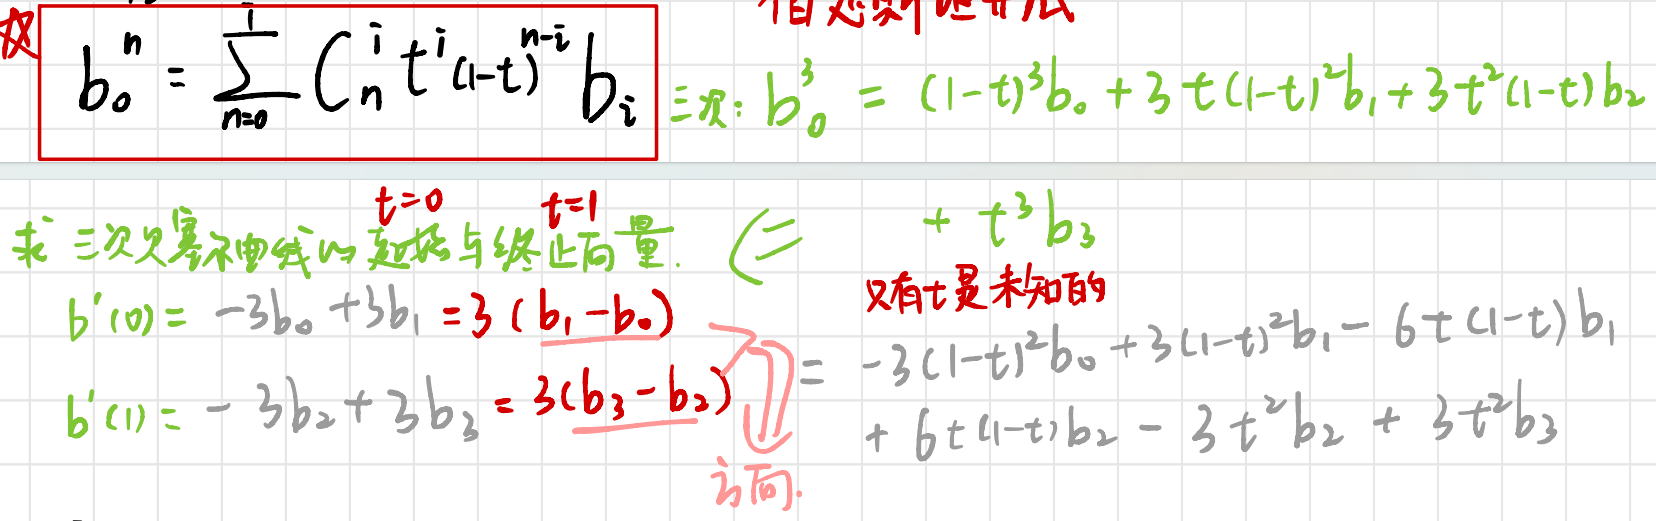 故
b₀ⁿ = Σ n=0 Cₙⁱ tⁱ (1-t)ⁿ⁻ⁱ bᵢ
三次: b₀³ = (1-t)³b₀ + 3t(1-t)²b₁ + 3t²(1-t)b₂
+ t³b₃
t=0 t=1
求三次贝塞尔曲线的起始与终止向量. ⇐
又有t是未知的
b'(0) = -3b₀ + 3b₁ = 3(b₁-b₀)
b'(1) = -3b₂ + 3b₃ = 3(b₃-b₂)
方向.
= -3(1-t)²b₀ + 3(1-t)²b₁ - 6t(1-t)b₁
+ 6t(1-t)b₂ - 3t²b₂ + 3t²b₃